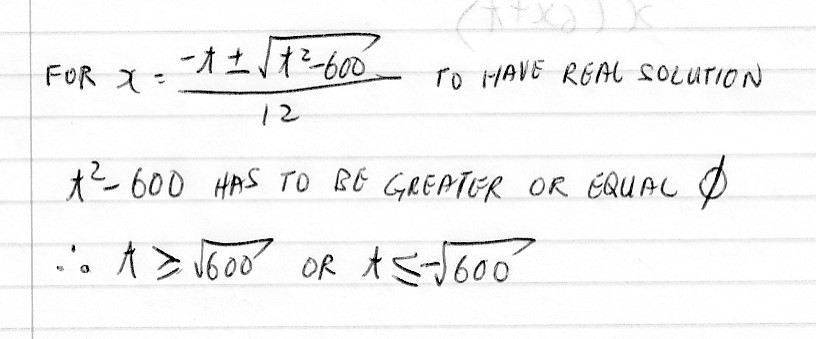 FOR x = (-t ± √(t²-600)) / 12 TO HAVE REAL SOLUTION
t²- 600 HAS TO BE GREATER OR EQUAL ∅
∴ t ≥ √600 OR t ≤ -√600